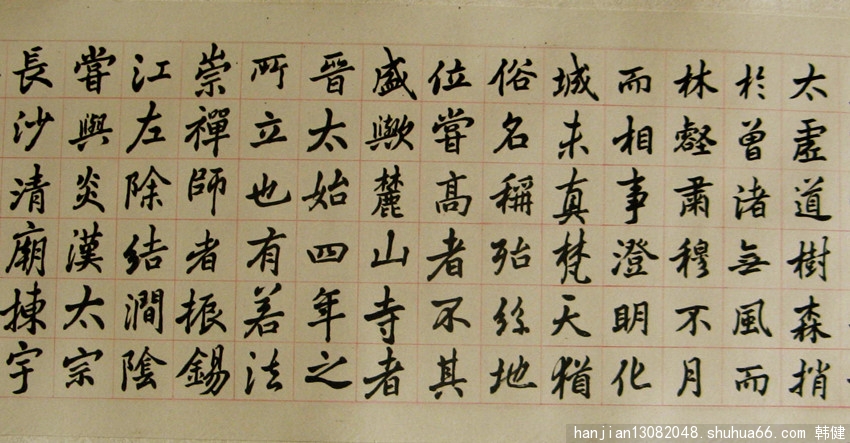 太虛道樹森捎
於曾渚無風而
林壑肅穆不月
而相事澄明化
城未真梵天猶
俗名稱殆絲地
位嘗高者不其
盛歟麓山寺者
晉太始四年之
所立也有若法
崇禪師者振錫
江左除結澗陰
嘗與炎漢太宗
長沙清廟棟宇
hanjian13082048.shuhua66.com 韩健